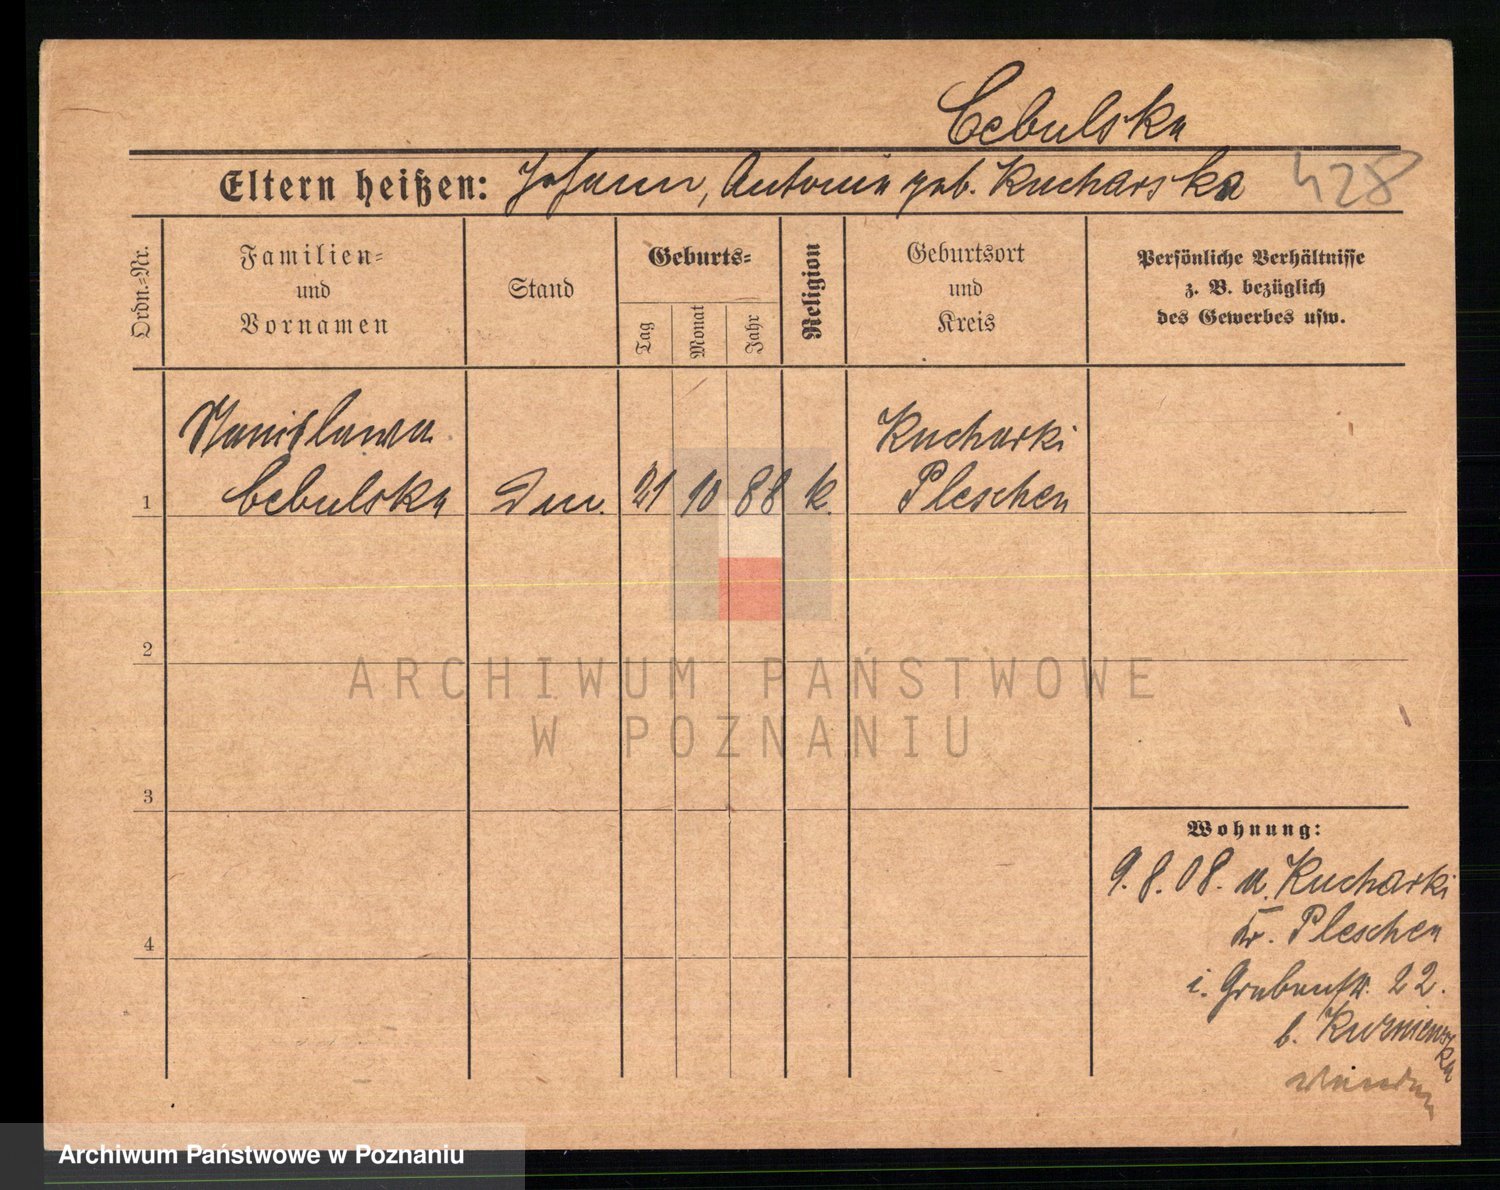 Cebulska
Eltern heißen: Johann, Antonie geb. Kucharska 428
Ordn.=Nr.
Familien=
und
Vornamen
Stand
Geburts=
Tag
Monat
Jahr
Religion
Geburtsort
und
Kreis
Persönliche Verhältnisse
z. B. bezüglich
des Gewerbes usw.
Stanislawa Kucharki
1 Cebulska 21 10 88 k. Pleschen
2
ARCHIWUM PAŃSTWOWE
W POZNANIU
3
Wohnung:
9.8.08. Kucharki
Kr. Pleschen
4
i. Grabenstr. 22.
b.
Archiwum Państwowe w Poznaniu